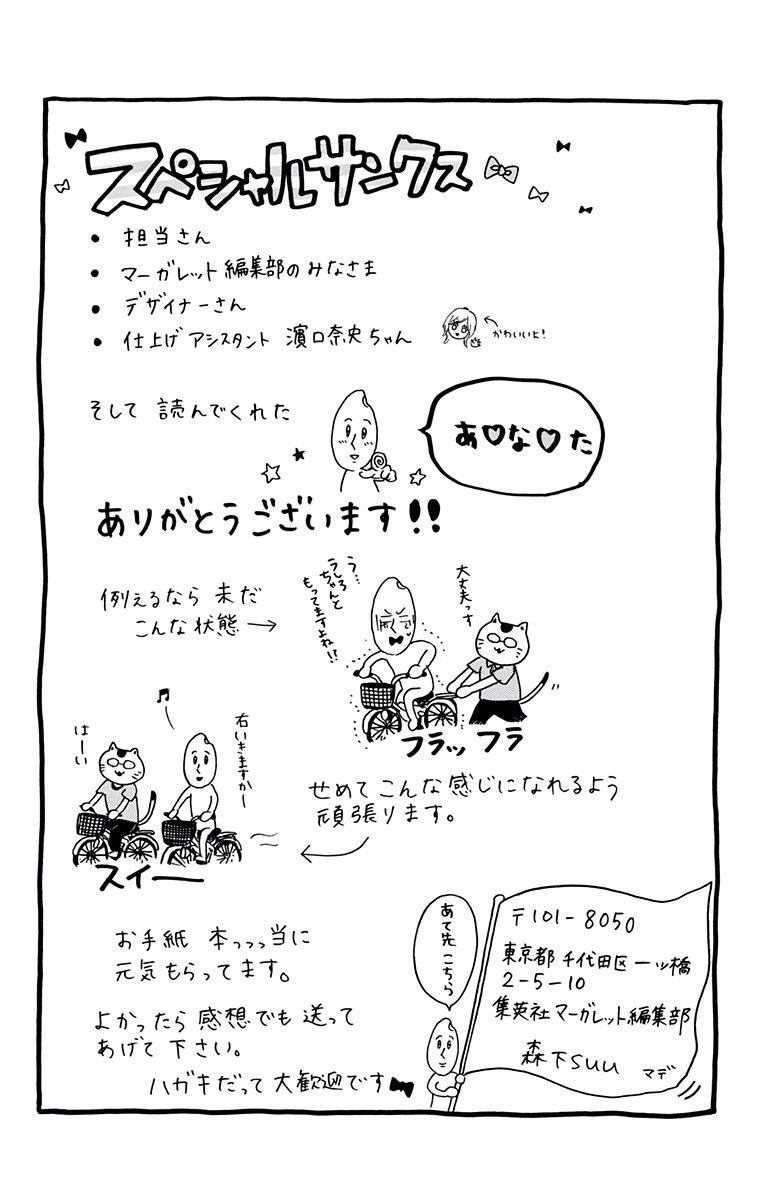 スペシャルサンクス
• 担当さん
• マーガレット編集部のみなさま
• デザイナーさん
• 仕上げアシスタント 濱口奈史ちゃん
かわいいよ!
そして 読んでくれた
あ♡な♡た
ありがとうございます!!
例えるなら 未だ
こんな状態→
う…
うしろ
ちゃんと
もってますよね!!
大丈夫っす
フラッ フラ
はーい
♬
右いきますかー
スイー
せめて こんな感じになれるよう
頑張ります。
お手紙 本っっっ当に
元気もらってます。
よかったら 感想でも 送って
あげて 下さい。
ハガキだって 大歓迎です
あて先 こちら
〒101-8050
東京都 千代田区 一ツ橋
2-5-10
集英社マーガレット編集部
森下suu マデ